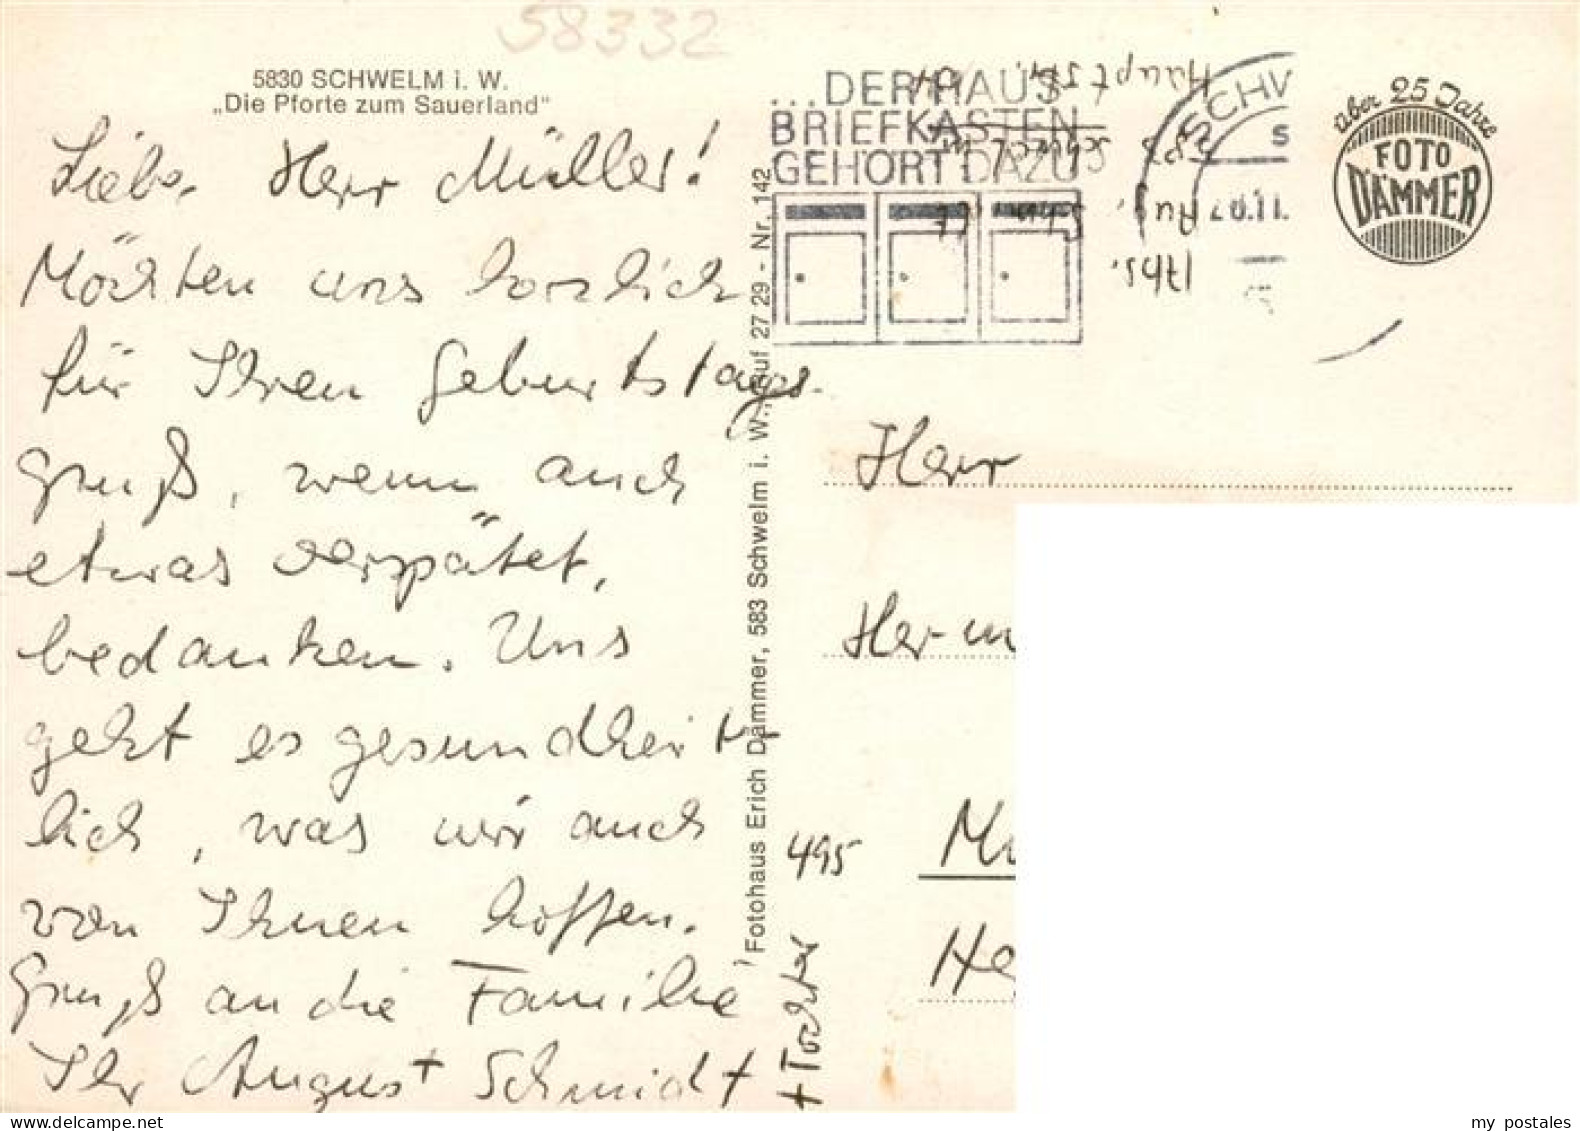 58332
5830 SCHWELM i. W.
„Die Pforte zum Sauerland"
Lieber Herr Müller!
Möchten uns herzlich
für Ihren Geburtstags-
gruß, wenn auch
etwas verspätet,
bedanken. Uns
geht es gesundheit-
lich, was wir auch
von Ihnen hoffen.
Gruß an die Familie
Ihr August Schmidt
+ Tochter
Fotohaus Erich Dämmer, 583 Schwelm i. W., Ruf 27 29 - Nr. 142
...DER HAUS-
BRIEFKASTEN
GEHÖRT DAZU
SCHW
20.11.
Abs.
583 Schwelm
Hauptstr.
über 25 Jahre
FOTO
DÄMMER
Herr
Herm
495
He
my postales